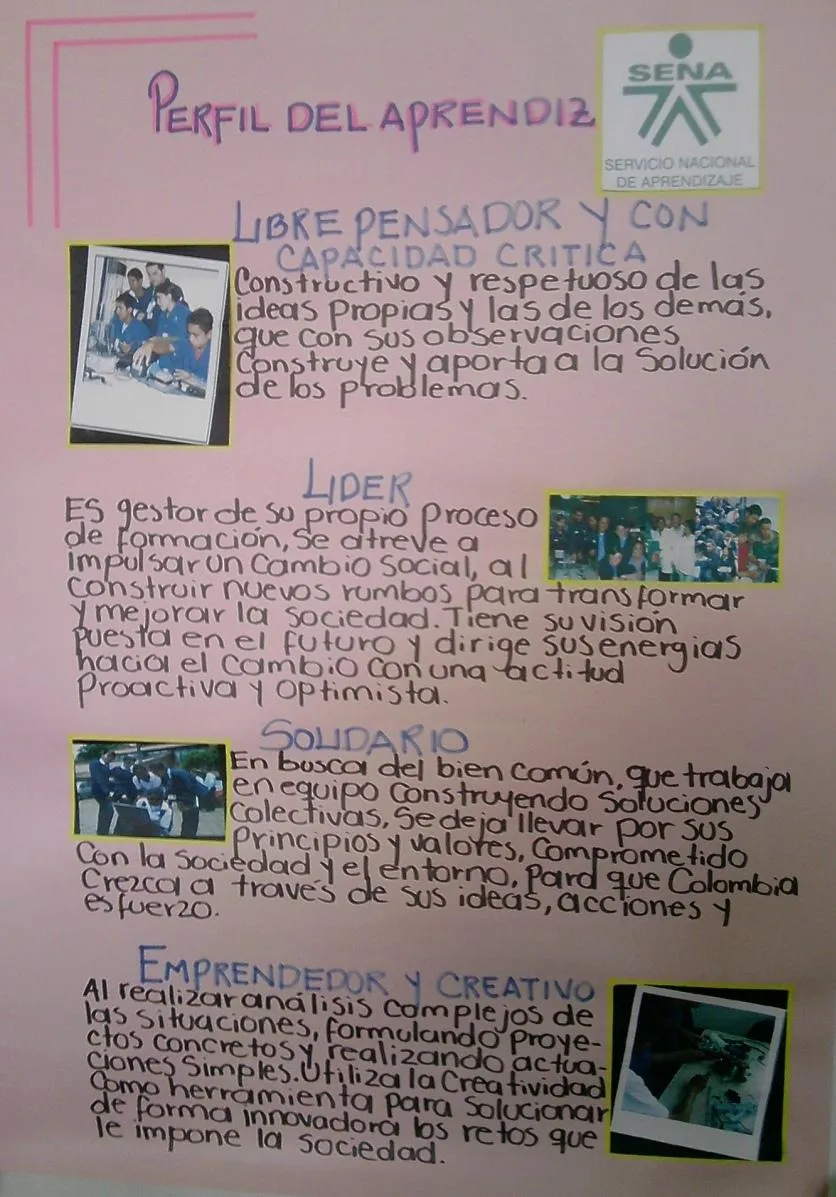 PERFIL DEL APRENDIZ
SENA
SERVICIO NACIONAL
DE APRENDIZAJE
LIBRE PENSADOR Y CON
CAPACIDAD CRITICA
Constructivo y respetuoso de las
ideas propias y las de los demás,
que con sus observaciones
Construye y aporta a la Solución
de los problemas.
LIDER
ES gestor de su propio proceso
de formación, se atreve a
impulsar un cambio social, al
construir nuevos rumbos para transformar
y mejorar la sociedad. Tiene su visión
puesta en el futuro y dirige sus energias
hacia el cambio con una actitud
Proactiva y optimista.
SOLIDARIO
En busca del bien común, que trabaja
en equipo construyendo soluciones
colectivas, se deja llevar por sus
Principios y valores, comprometido
Con la sociedad y el entorno, para que Colombia
Crezca a través de sus ideas, acciones y
esfuerzo.
EMPRENDEDOR Y CREATIVO
Al realizar análisis complejos de
las situaciones, formulando proye-
ctos concretos y realizando actua-
ciones simples. Utiliza la Creatividad
como herramienta para solucionar
de forma innovadora los retos que
le impone la sociedad.